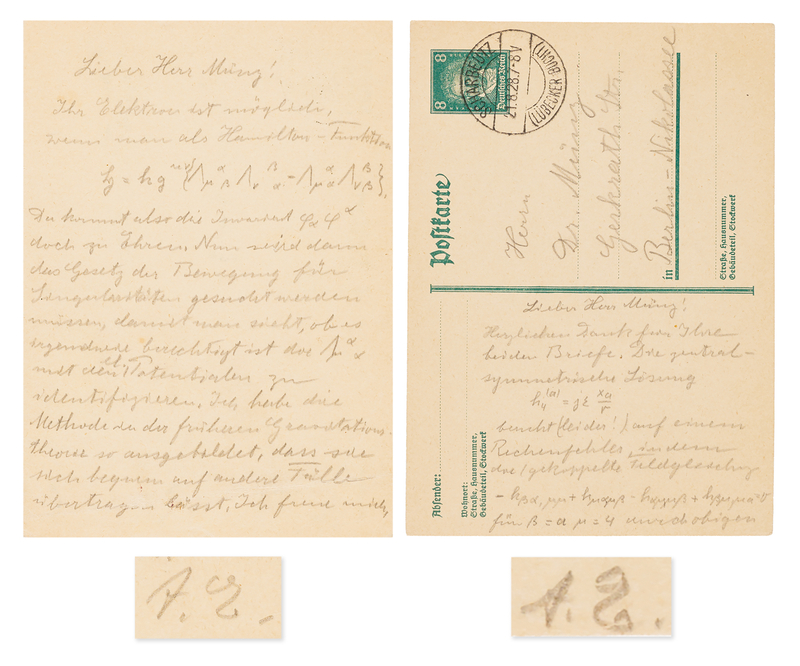 Lieber Herr Müntz!
Ihr Elektron ist möglich,
wenn man als Hamilton-Funktion
Da kommt also die Invariant φα φα
doch zu Ehren. Nun wird dann
das Gesetz der Bewegung für
Singularitäten gesucht werden
müssen, damit man sieht, ob es
irgendwie berechtigt ist das Λμαα
mit den el. Potentialen zu
identifizieren. Ich habe die
Methode in der früheren Gravitations-
theorie so ausgebildet, dass sie
sich bequem auf andere Fälle
übertragen lässt. Ich freue mich,
A. E.
8
8
Deutsches Reich
SCHARBEUTZ
21.8.28.7-8 V
(LÜBECKER BUCHT)
Postkarte
Herrn
Dr. Müntz
Gerkrath Str.
in Berlin-Nikolassee
Straße, Hausnummer,
Gebäudeteil, Stockwerk
Absender:
Wohnort:
Straße, Hausnummer,
Gebäudeteil, Stockwerk
Lieber Herr Müntz!
Herzlichen Dank für Ihre
beiden Briefe. Die zentral-
symmetrische Lösung
beruht (leider!) auf einem
Rechenfehler, indem
die gekoppelte Feldgleichung
für β = α μ = 4 und obigen
A. E.